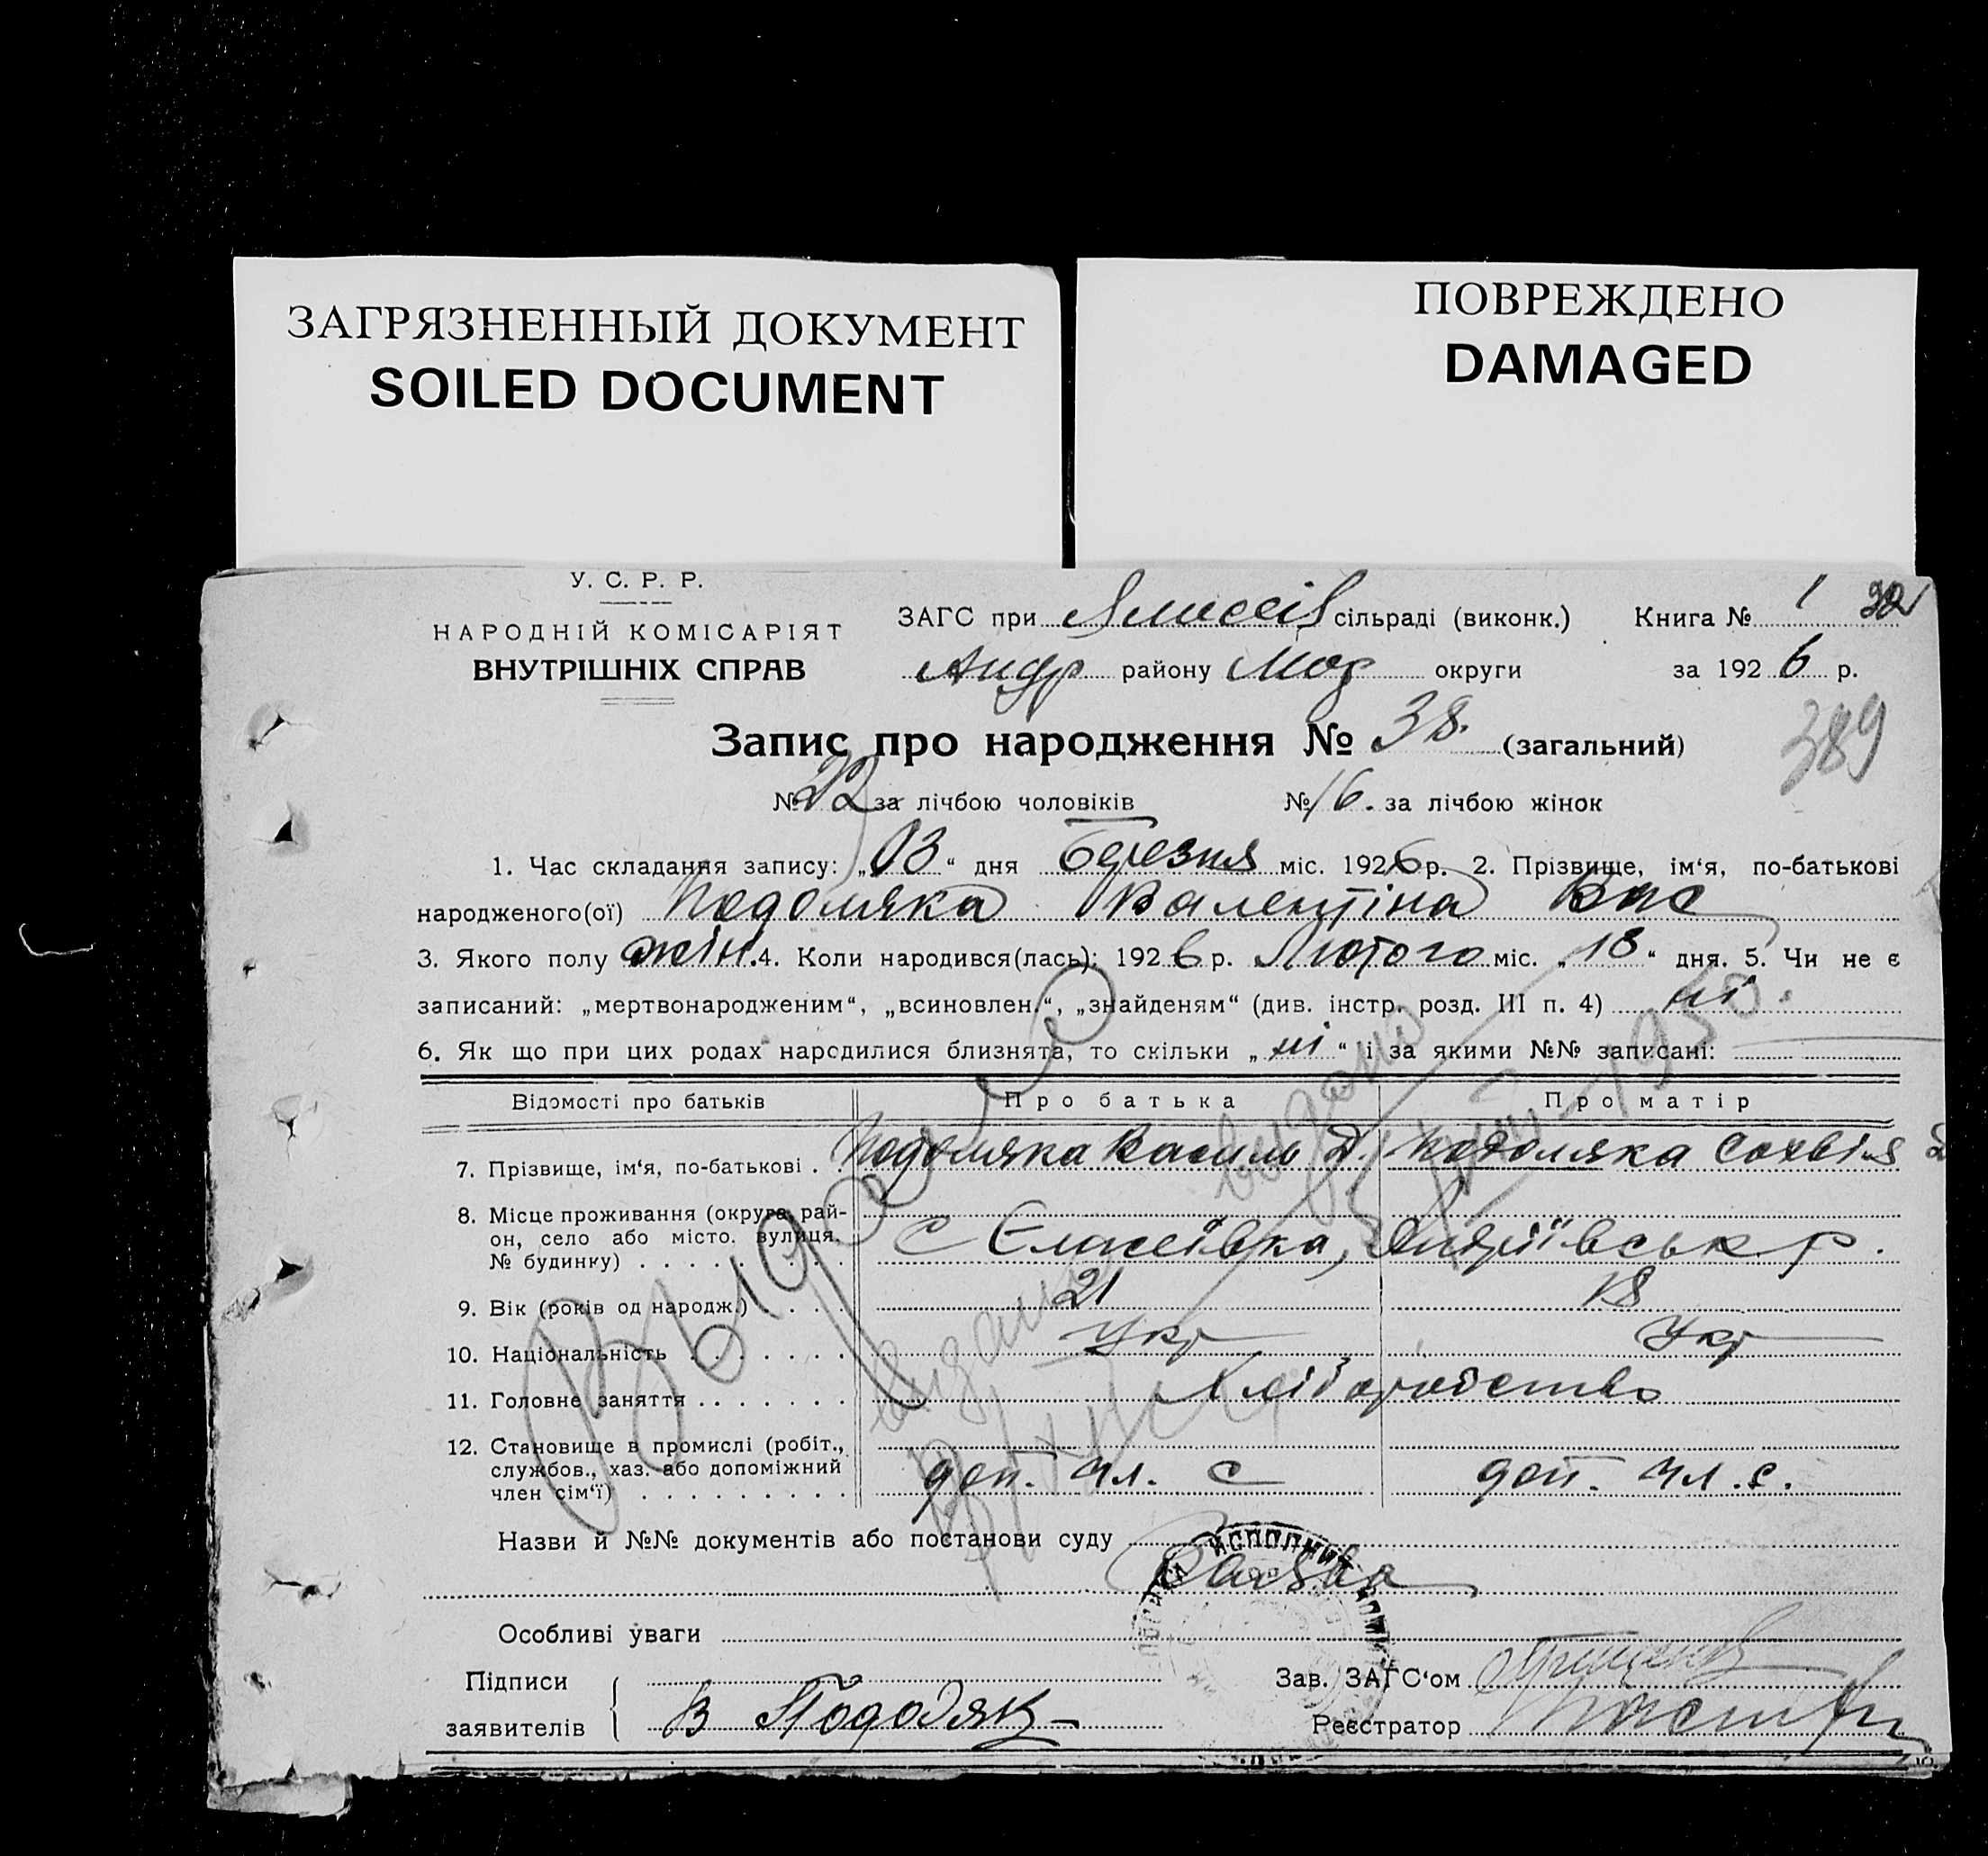 ЗАГРЯЗНЕННЫЙ ДОКУМЕНТ
SOILED DOCUMENT
ПОВРЕЖДЕНО
DAMAGED
У. С. Р. Р.
НАРОДНІЙ КОМІСАРІЯТ
ВНУТРІШНІХ СПРАВ
ЗАГС при сільраді (виконк.) Книга № 1
Андр району округи за 1926 р.
389
Запис про народження № 38. (загальний)
№ 22 за лічбою чоловіків № 16. за лічбою жінок
1. Час складання запису: „03“ дня березня міс. 1926 р. 2. Прізвище, ім‘я, по-батькові
народженого(ої) Подоляка Валентіна Вас
3. Якого полу жін. 4. Коли народився(лась): 1926 р. Лютого міс. „18“ дня. 5. Чи не є
записаний: „мертвонародженим“, „всиновлен.“, „знайденям“ (див. інстр. розд. III п. 4) ні.
6. Як що при цих родах народилися близнята, то скільки „ні“ і за якими №№ записані:
Відомості про батьків Про батька Про матір
7. Прізвище, ім‘я, по-батькові . . Подоляка Василь Д. Подоляка Софія
8. Місце проживання (округа, рай-
он, село або місто, вулиця,
№ будинку) . . . . . . . . . с Єлисеївка, Андріївськ. р.
9. Вік (років од народж.) . . . . 21 18
10. Національність . . . . . . . Укр Укр
11. Головне заняття . . . . . . . Хліборобство
12. Становище в промислі (робіт.,
службов., хаз. або допоміжний
член сім‘ї) . . . . . . . . . доп. чл. с доп. чл. с.
Назви й №№ документів або постанови суду
Особливі уваги
Підписи
заявителів В Подоляк
Зав. ЗАГС‘ом
Реєстратор